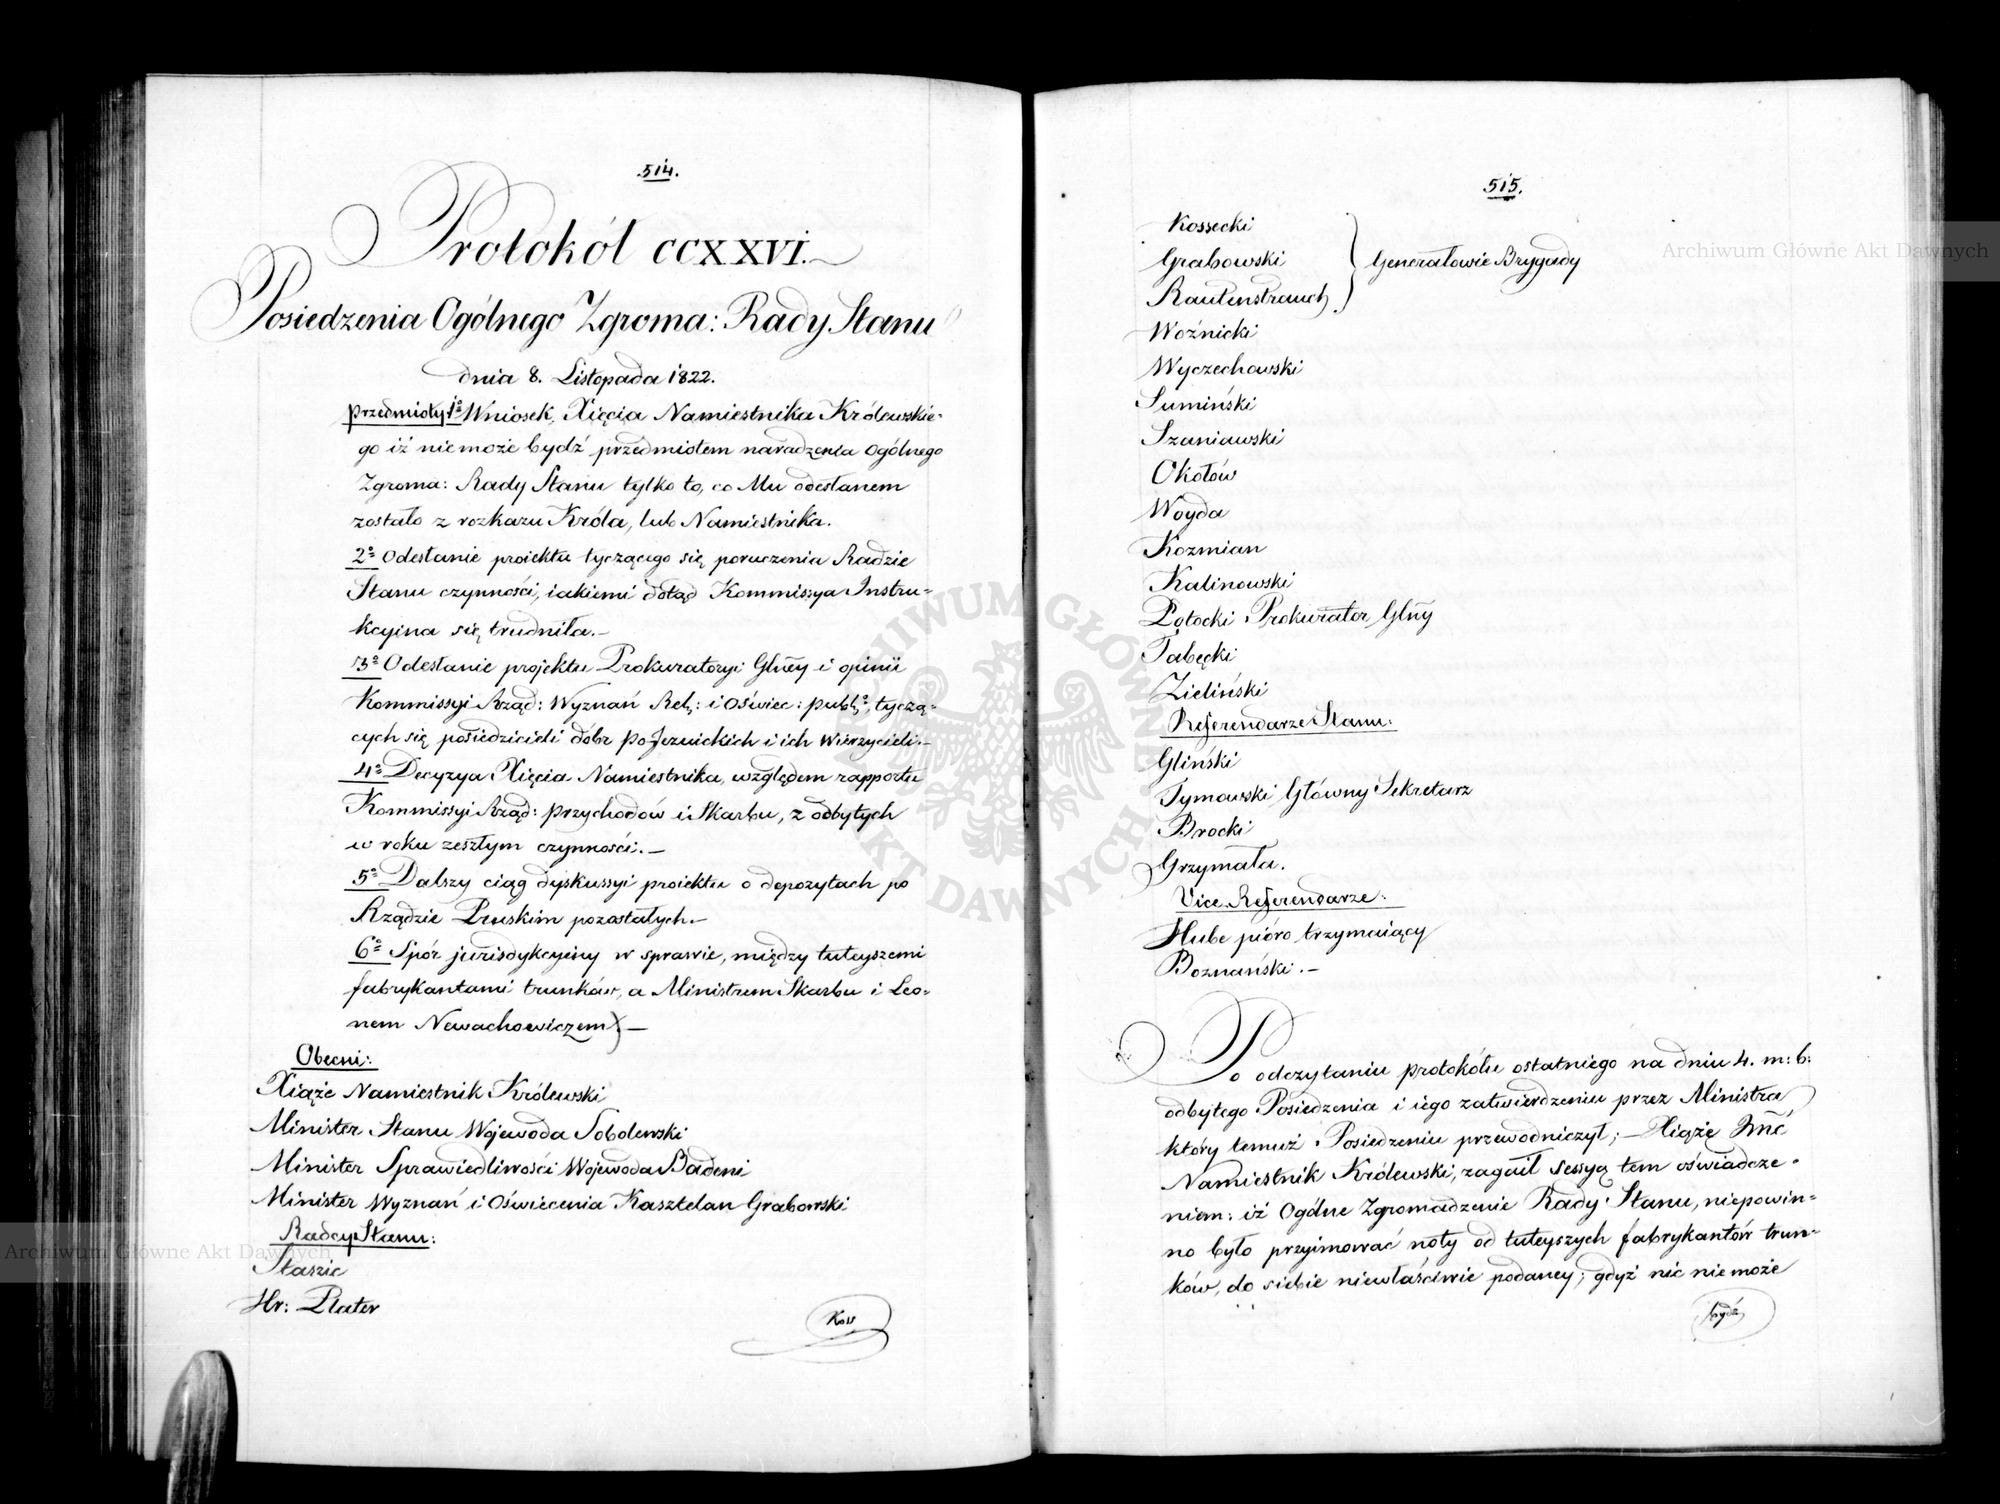 514.
Protokół CCXXVI.
Posiedzenia Ogólnego Zgroma: Rady Stanu
dnia 8. Listopada 1822.
Przedmioty 1º Wniosek, Xięcia Namiestnika Królewskie-
go iż niemoże bydź przedmiotem naradzenia Ogólnego
Zgroma: Rady Stanu tylko to, co Mu odesłanem
zostało z rozkazu Króla, lub Namiestnika.
2º Odesłanie proiektu tyczącego się poruczenia Radzie
Stanu czynności, iakiemi dotąd Kommissya Instru-
kcyina się trudniła.—
3º Odesłanie projektu Prokuratoryi Glney i opinii
Kommissyi Rząd: Wyznań Rel: i Oświec: publ:, tyczą-
cych się posiedzicieli dóbr PoJezuickich i ich Wierzycieli.—
4º Decyzya Xięcia Namiestnika, względem rapportu
Kommissyi Rząd: Przychodów i Skarbu, z odbytych
w roku zeszłym czynności.—
5º Dalszy ciąg dyskussyi proiektu o depozytach po
Rządzie Pruskim pozostałych.—
6º Spór jurisdykcyiny w sprawie, między tuteyszemi
fabrykantami trunków, a Ministrem Skarbu i Leo-
nem Newachowiczem)—
Obecni:
Xiąże Namiestnik Królewski
Minister Stanu Wojewoda Sobolewski
Minister Sprawiedliwości Wojewoda Badeni
Minister Wyznań i Oświecenia Kasztelan Grabowski
Radcy Stanu:
Staszic
Hr: Plater
Koss
515.
Kossecki
Grabowski
Rautenstrauch
Generałowie Brygady
Woźnicki
Wyczechowski
Sumiński
Szaniawski
Okołów
Woyda
Kozmian
Kalinowski
Potocki Prokurator Glny
Tabęcki
Zieliński
Referendarze Stanu:
Gliński
Tymowski Główny Sekretarz
Brocki
Grzymała.
Vice Referendarze:
Hube pióro trzymaiący
Boznański.—
Po odczytaniu protokółu ostatniego na dniu 4. m: b:
odbytego Posiedzenia i iego zatwierdzeniu przez Ministra
który temuż Posiedzeniu przewodniczył;—Xiąże Jmć
Namiestnik Królewski, zagaił sessyą tem oświadcze-
niem: iż Ogólne Zgromadzenie Rady Stanu, niepowin-
no było przyimować noty od tuteyszych fabrykantów trun-
ków, do siebie niewłaściwie podaney; gdyż nic niemoże
bydź
Archiwum Główne Akt Dawnych
Archiwum Główne Akt Dawnych
ARCHIWUM GŁÓWNE AKT DAWNYCH